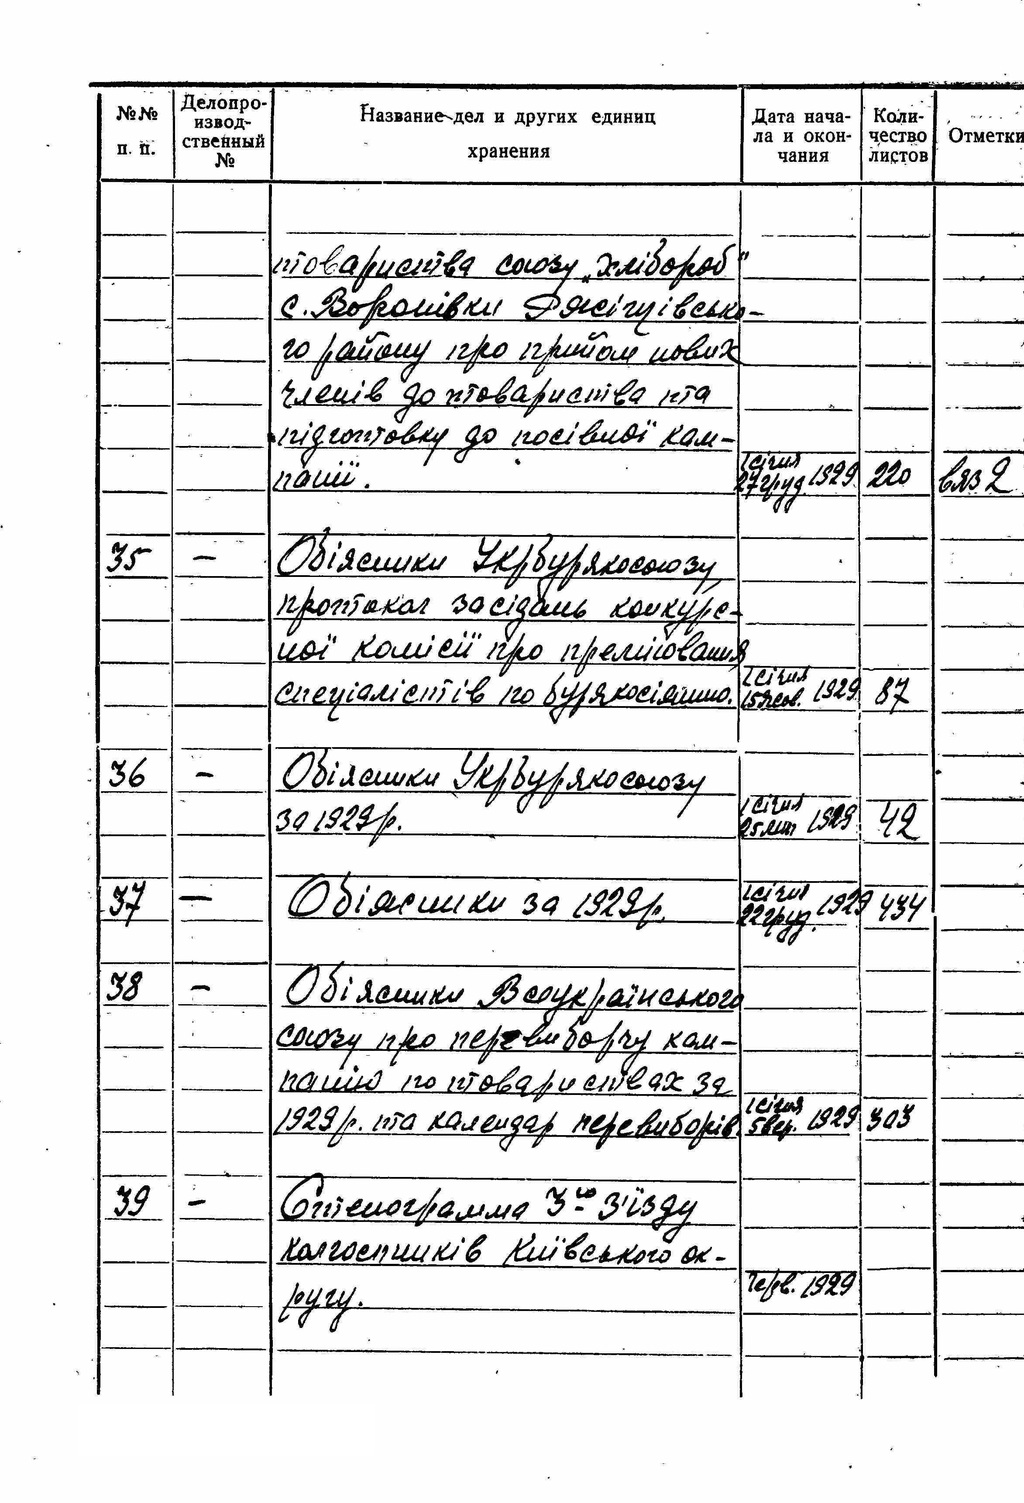 №№ п. п. Делопро-извод-ственный № Название дел и других единиц хранения Дата нача-ла и окон-чания Коли-чество листов Отметки
товариства союзу „Хлібороб"
с. Воронівки
го району про прийом нових
членів до товариства та
підготовку до посівної кам-
панії. 1 січня 27 груд. 1929 220 вяз 2
35 — Обіясники Укрбурякосоюзу,
протокол засідань конкурс-
ної комісії про преміювання
спеціалістів по бурякосіянню. 1 січня 15 жов. 1929 87
36 — Обіясники Укрбурякосоюзу
за 1929 р. 1 січня 25 лют 1929 42
37 — Обіясники за 1929 р. 1 січня 22 груд. 1929 434
38 — Обіясники Всеукраїнського
союзу про перевиборчу кам-
панію по товариствах за
1929 р. та календар перевиборів. 1 січня 5 вер. 1929 303
39 — Стенограмма 3го З'їзду
колгоспників Київського ок-
ругу. Черв. 1929